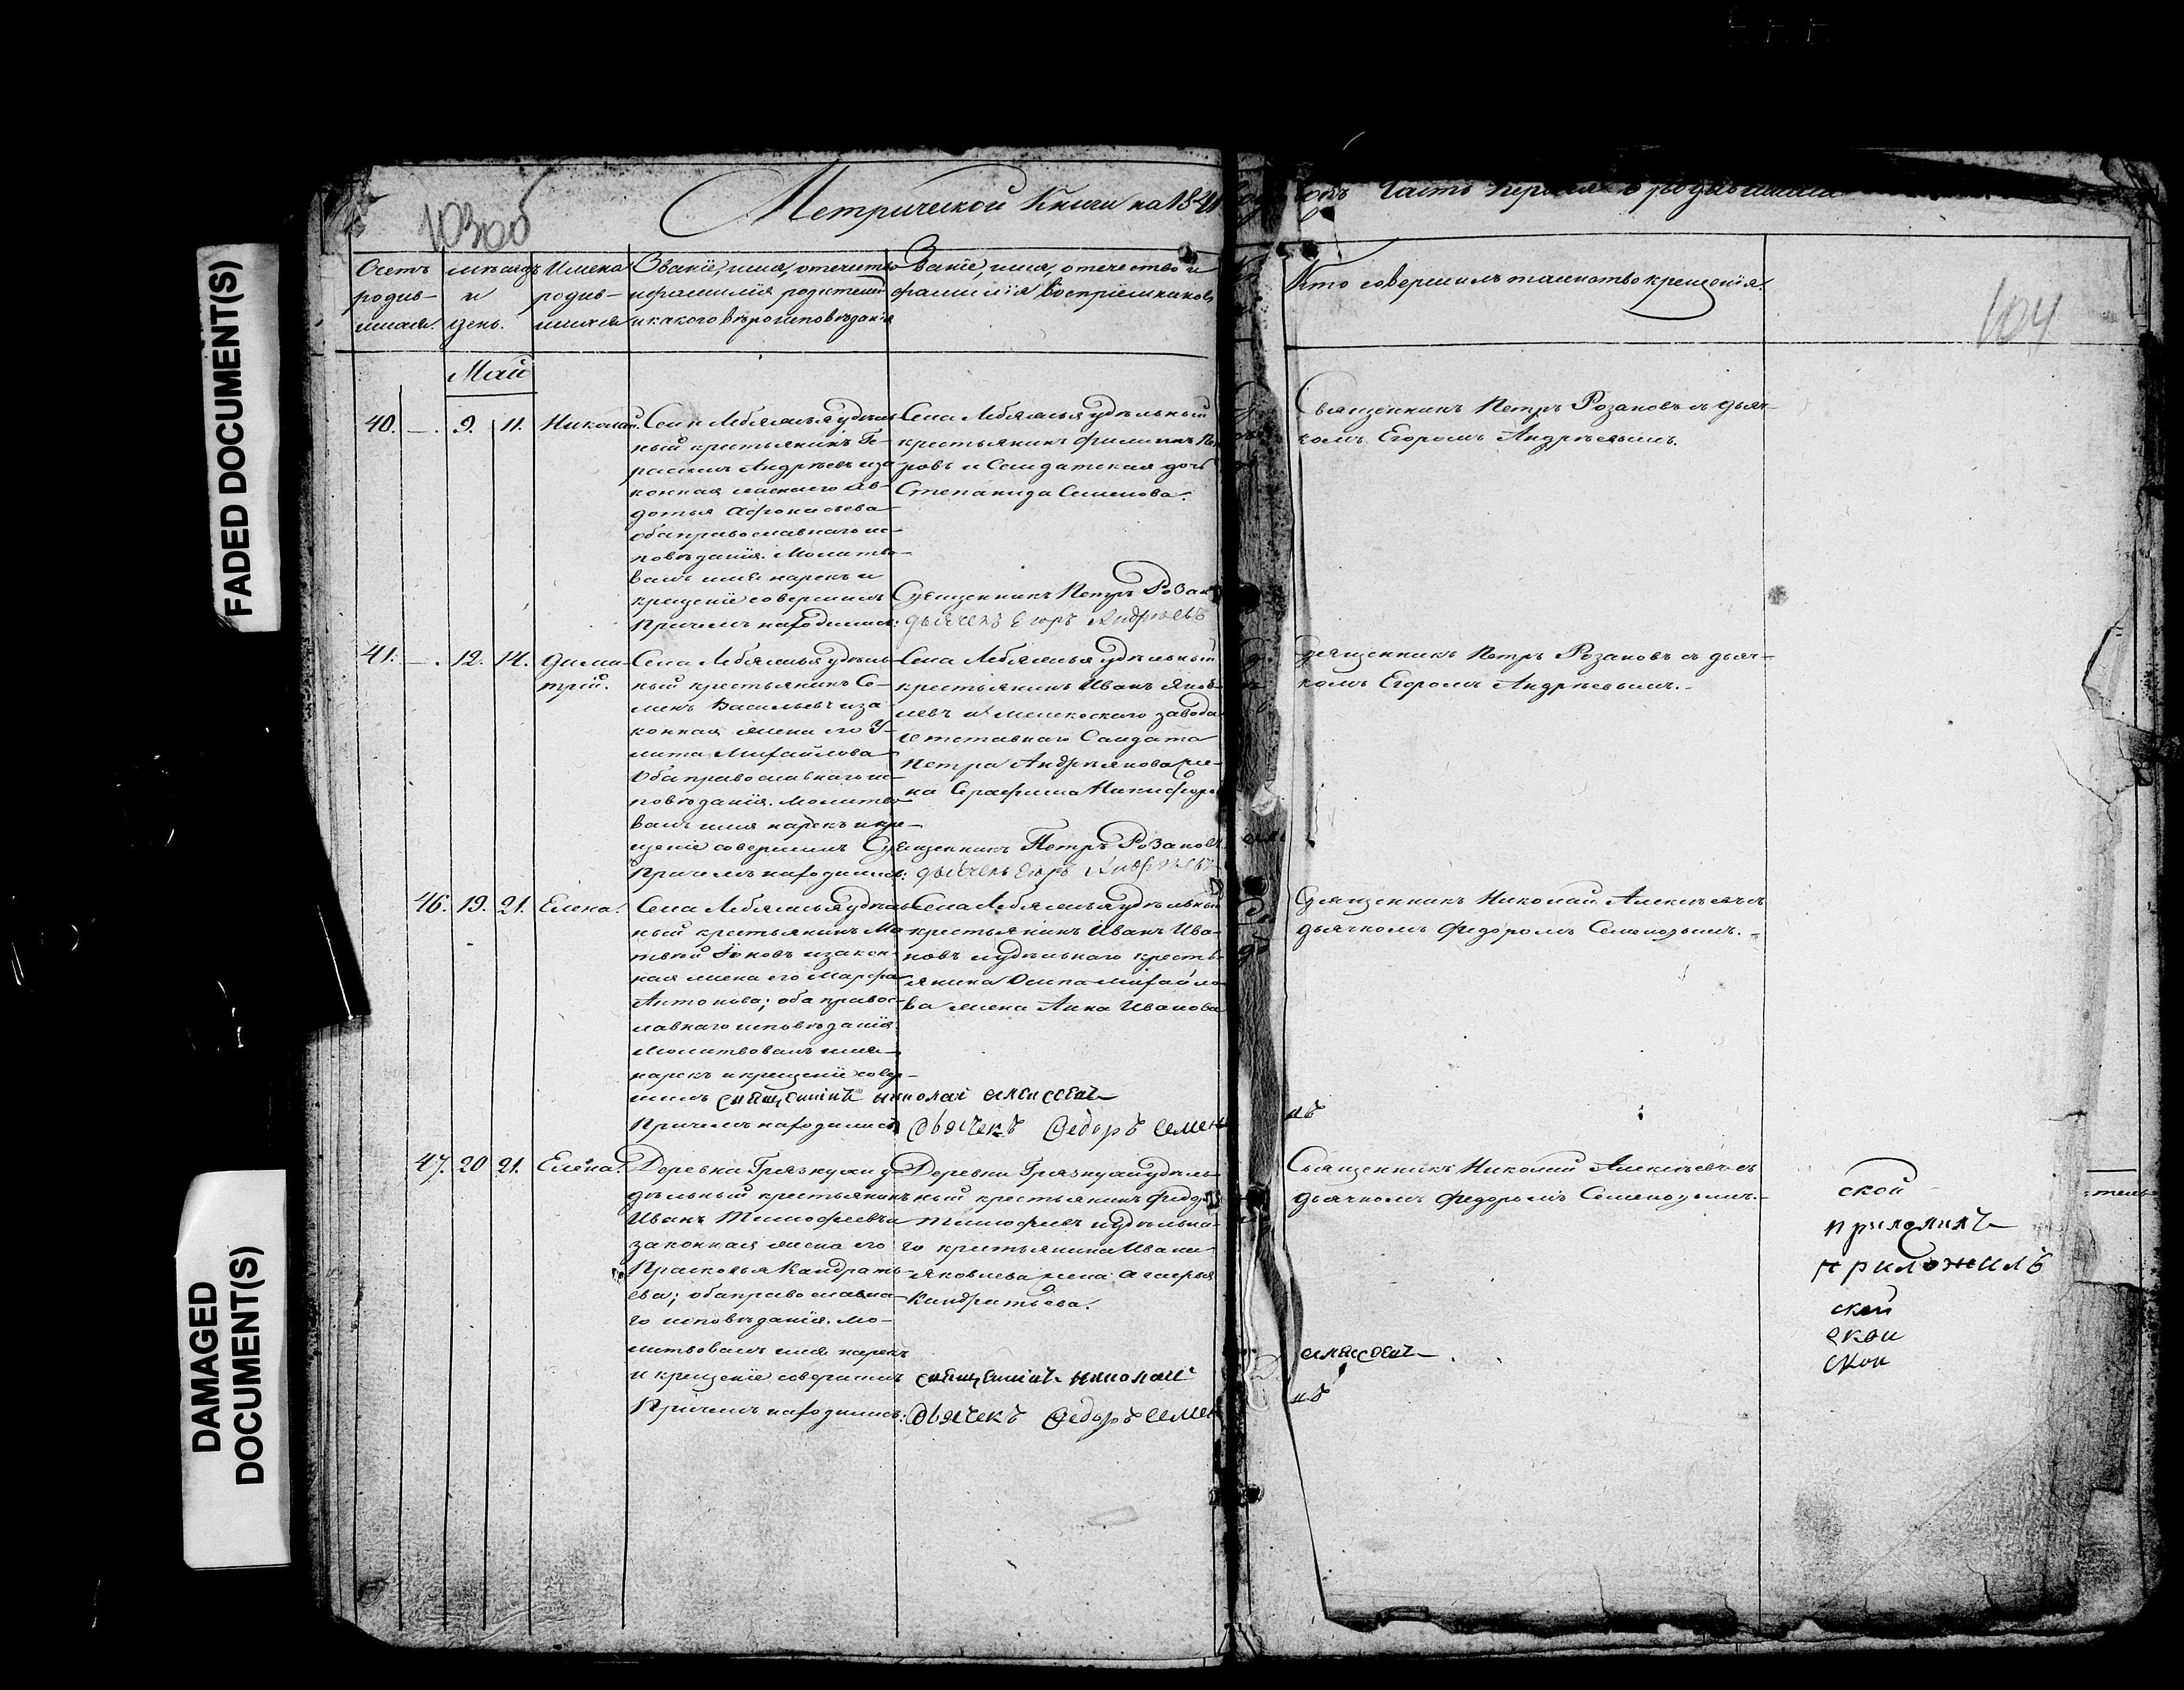 FADED DOCUMENT(S)
DAMAGED
DOCUMENT(S)
Метрической Книги на 1841
годъ Часть первая о родившихся
104
Счетъ
родив-
шихся.
мѣсяцъ
и
день.
Имена
родив-
шихся
Званіе, имя, отечество
и фамилія родителей
и какого вѣроисповѣданія
Званіе, имя, отечество и
фамилія воспріемниковъ
Кто совершилъ таинство крещенія.
Май
40. — 9. 11. Николай.
Села Лебяжья удѣль-
ный крестьянинъ Ге-
расимъ Андреевъ и за-
конная жена его Ав-
дотья Афонасьева
оба православнаго ис-
повѣданія. Молитво-
валъ имя нарекъ и
крещеніе совершилъ Священникъ Петръ Розановъ
Причемъ находились: дьячекъ Егоръ Андреевъ
Села Лебяжья удѣльный
крестьянинъ Филиппъ
ровъ и Солдатская дочь
Степанида Семенова.
Священникъ Петръ Розановъ съ дьяч-
комъ Егоромъ Андреевымъ.
41. — 12. 14. Дими-
трій.
Села Лебяжья удѣль-
ный крестьянинъ Се-
менъ Васильевъ и за-
конная жена его У-
лита Михайлова
Оба православнаго ис-
повѣданія. Молитво-
валъ имя нарекъ и кре-
щеніе совершилъ Священникъ Петръ Розановъ
Причемъ находились: дьячекъ Егоръ Андреевъ
Села Лебяжья удѣльный
крестьянинъ Иванъ Яков-
левъ и завода
отставнаго Солдата
Петра Андреянова же-
на Серафима Никифоро
Священникъ Петръ Розановъ съ дьяч-
комъ Егоромъ Андреевымъ.-
46. 19. 21. Елена.
Села Лебяжья удѣль-
ный крестьянинъ Ма-
твей и закон-
ная жена его Марфа
Антонова; оба правос-
лавнаго исповѣданія
Молитвовалъ имя
нарекъ и крещеніе совер-
шилъ священникъ николай алексеевъ
Причемъ находились Дьячекъ Федоръ Семено
нъ
Села Лебяжья удѣльный
крестьянинъ Иванъ Ива-
новъ и удѣльнаго кресть-
янина Осипа Михайло-
ва жена Анна Иванова
Священникъ Николай Алексѣевъ съ
дьячкомъ Федоромъ Семеновымъ.-
47. 20 21. Елена.
Деревни Грязнухи у-
дѣльный крестьянинъ
Иванъ Тимофеевъ и
законная жена его
Прасковья Кандрать-
ева; оба православна-
го исповѣданія. Мо-
литвовалъ имя нарекъ
и крещеніе совершилъ священникъ николай
алексеевъ
Причемъ находились: Дьячекъ Федоръ Семено
нъ
Деревни Грязнухи удѣль-
ный крестьянинъ Федоръ
Тимофеевъ и удѣльна-
го крестьянина Ивана
Яковлева жена Агафья
Кандратьева.
Священникъ Николай Алексѣевъ съ
дьячкомъ Федоромъ Семеновымъ.-
ской
приложилъ
приложилъ
ской
ской
ской